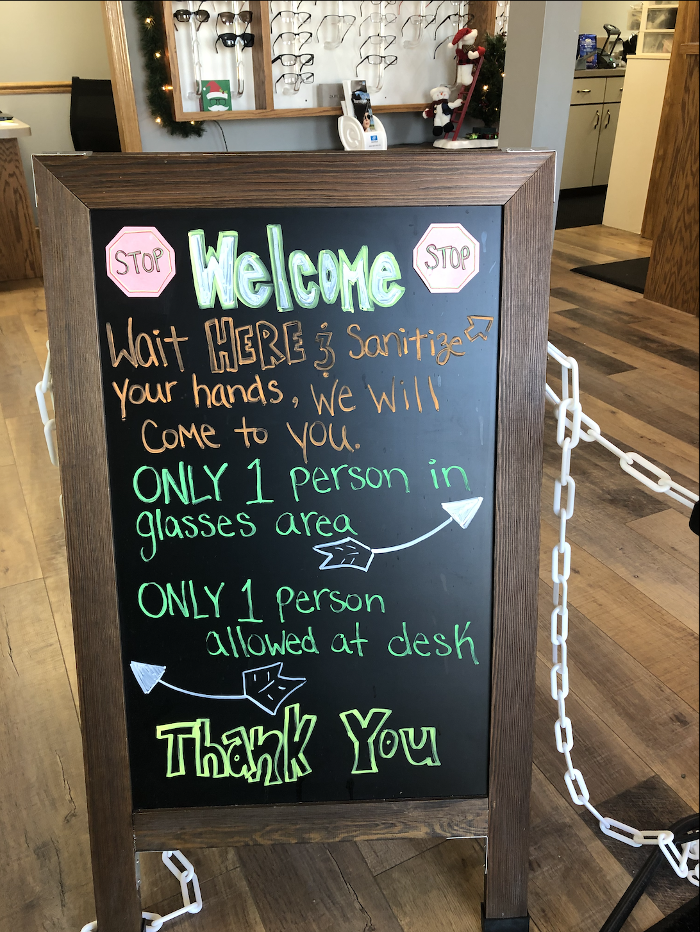 STOP Welcome STOP
Wait HERE & Sanitize
your hands, we will
come to you.
ONLY 1 person in
glasses area
ONLY 1 person
allowed at desk
Thank You